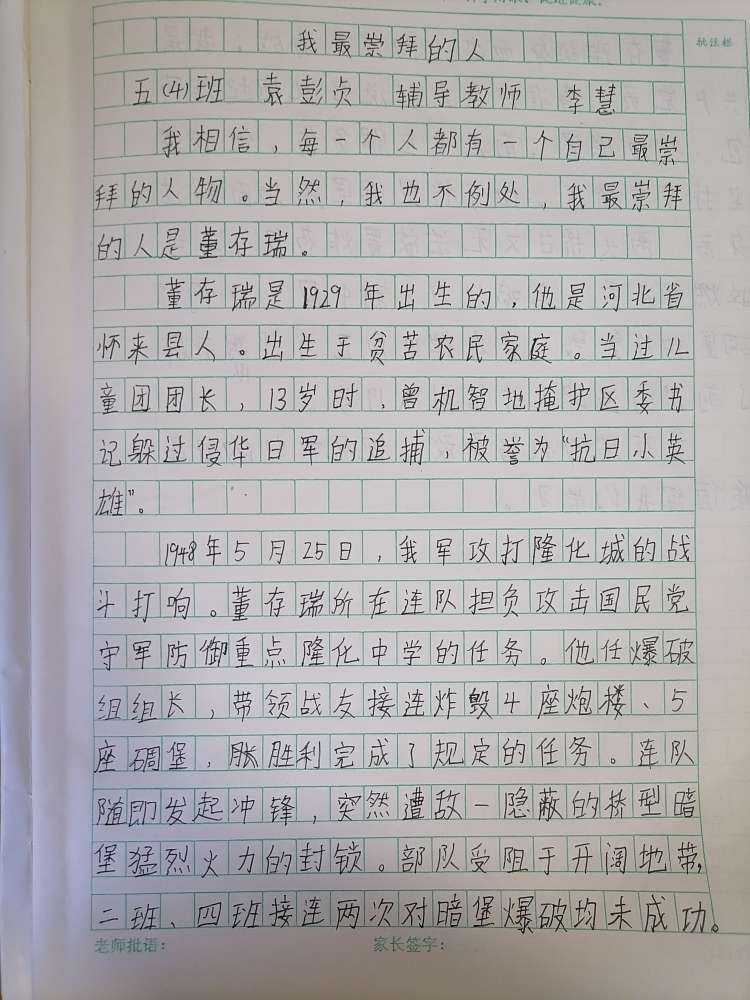 我最崇拜的人
批注栏
五(4)班 袁彭贞 辅导教师 李慧
我相信，每一个人都有一个自己最崇
拜的人物。当然，我也不例处，我最崇拜
的人是董存瑞。
董存瑞是1929年出生的，他是河北省
怀来县人。出生于贫苦农民家庭。当过儿
童团团长，13岁时，曾机智地掩护区委书
记躲过侵华日军的追捕，被誉为“抗日小英
雄”。
1948年5月25日，我军攻打隆化城的战
斗打响。董存瑞所在连队担负攻击国民党
守军防御重点隆化中学的任务。他任爆破
组组长，带领战友接连炸毁4座炮楼、5
座碉堡，胜利完成了规定的任务。连队
随即发起冲锋，突然遭敌一隐蔽的桥型暗
堡猛烈火力的封锁。部队受阻于开阔地带，
二班、四班接连两次对暗堡爆破均未成功。
老师批语： 家长签字：